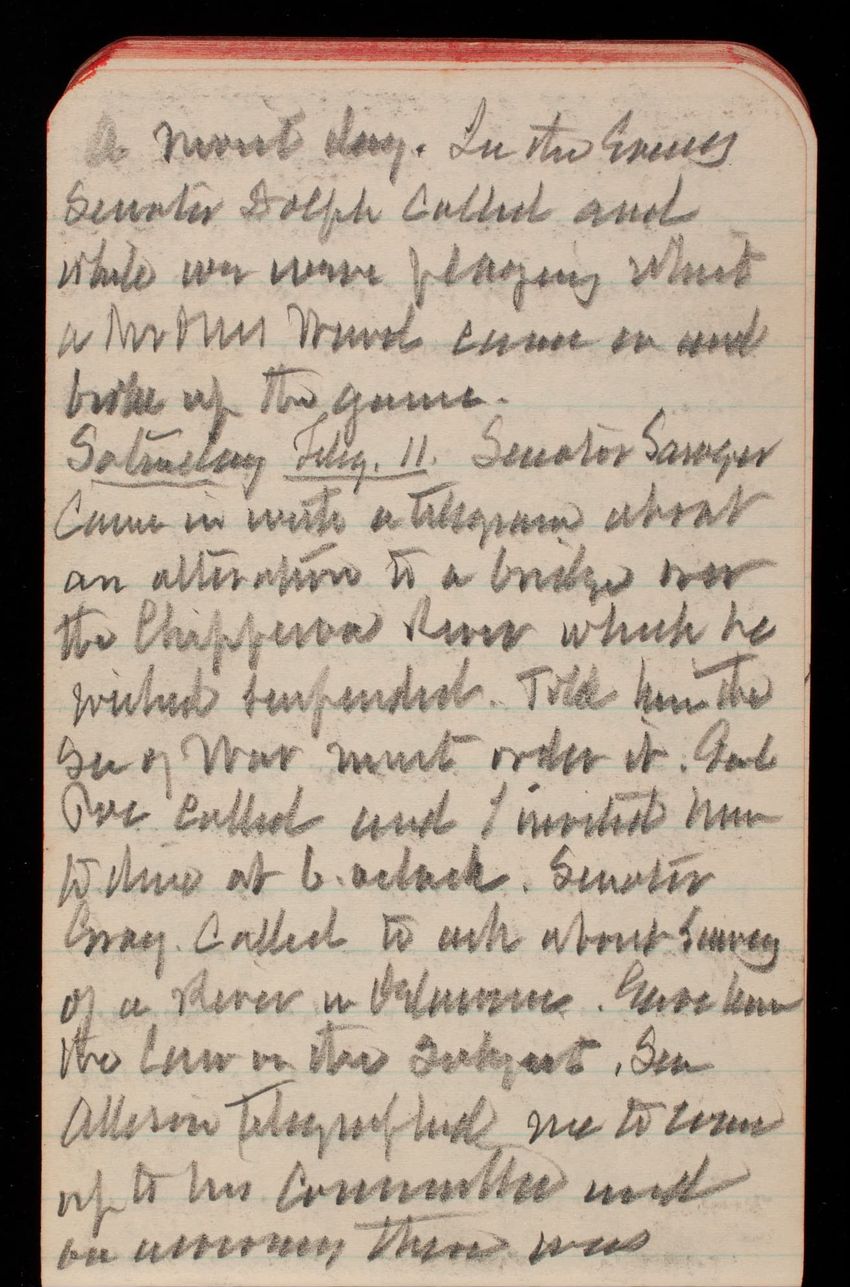 A moist day. In the Evening
Senator Dolph called and
while we were playing whist
a Mr & Mrs came in and
broke up the game.
Saturday Feby. 11. Senator Sawyer
came in with a telegram about
an alteration to a bridge over
the Chippewa River which he
wished suspended. Told him the
Sec of War must order it. Gnl
Poe called and I invited him
to dine at 6. oclock. Senator
Gray. called to ask about Survey
of a River in Delaware. Gave him
the law on the subject. Sen
Allison telegraphed me to come
up to his Committee and
on arriving there was